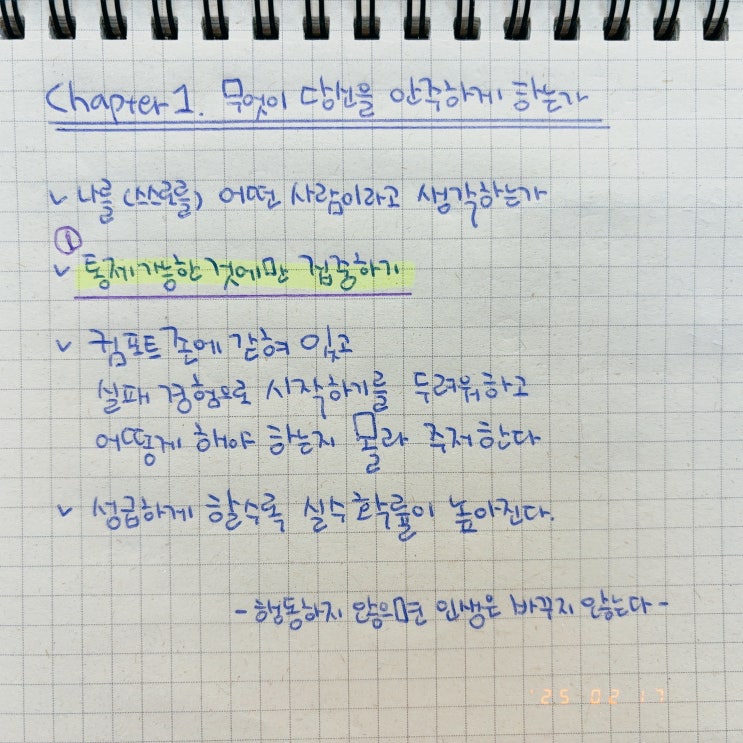 Chapter 1. 무엇이 당신을 안주하게 하는가
✓ 나를 (스스로를) 어떤 사람이라고 생각하는가
①
✓ 통제 가능한 것에만 집중하기
✓ 컴포트존에 갇혀 있고
실패 경험으로 시작하기를 두려워하고
어떻게 해야 하는지 몰라 주저한다
✓ 성급하게 할수록 실수 확률이 높아진다.
- 행동하지 않으면 인생은 바뀌지 않는다 -
'25 02 17